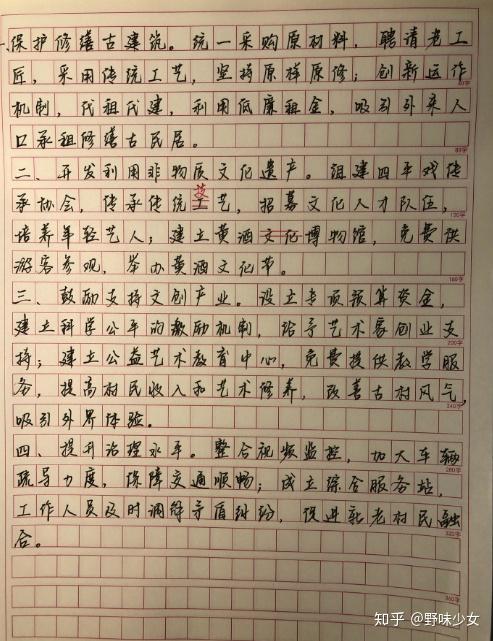 一、保护修缮古建筑。统一采购原材料，聘请老工
匠，采用传统工艺，坚持原样原修；创新运作
机制，代租代建，利用低廉租金，吸引外来人
口承租修缮古民居。
二、开发利用非物质文化遗产。组建四平戏传
承协会，传承传统技艺，招募文化人才队伍，
培养年轻艺人；建立黄酒文化博物馆，免费供
游客参观，举办黄酒文化节。
三、鼓励支持文创产业。设立专项预算资金，
建立科学公平的激励机制，给予艺术家创业支
持；建立公益艺术教育中心，免费提供教学服
务，提高村民收入和艺术修养，改善古村风气，
吸引外界体验。
四、提升治理水平。整合视频监控，加大车辆
疏导力度，保障交通顺畅；成立综合服务站，
工作人员及时调解矛盾纠纷，促进新老村民融
合。
知乎 @野味少女